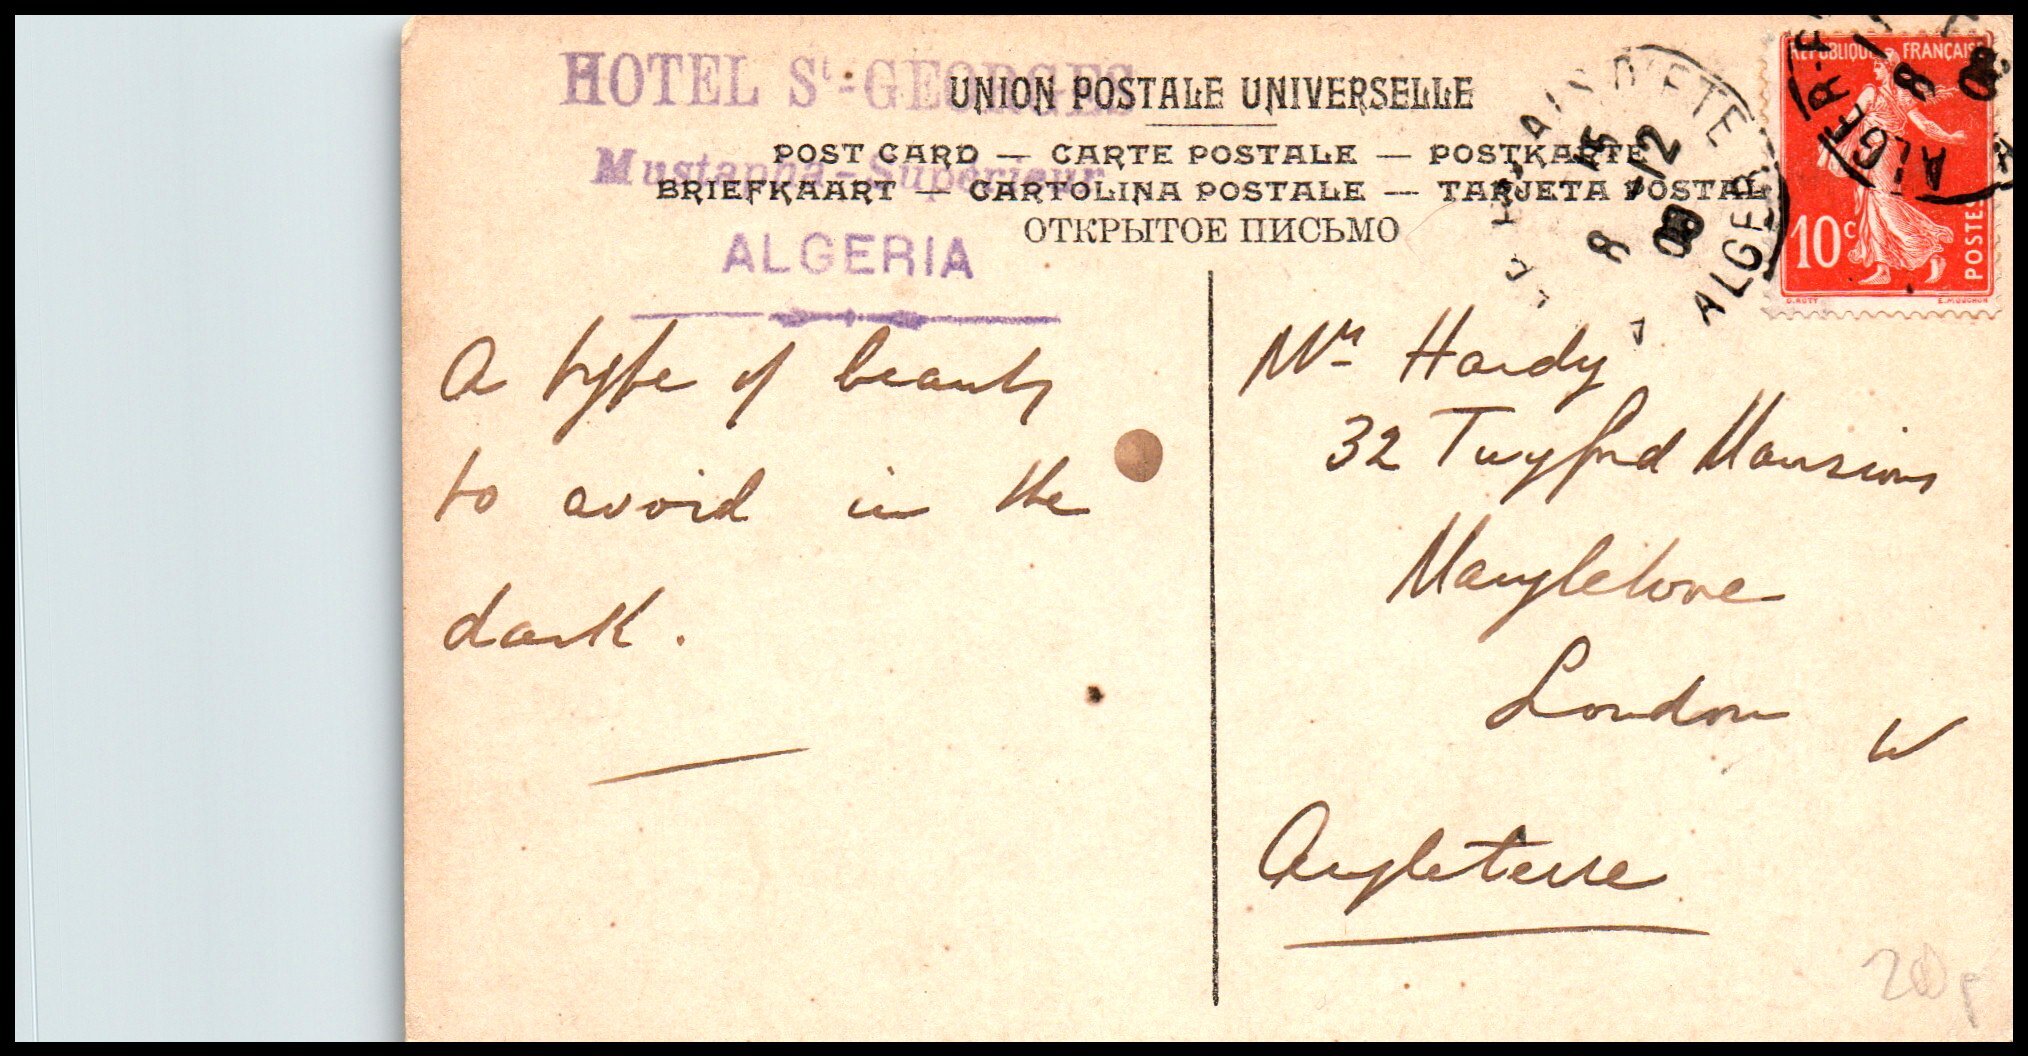 HOTEL St-GEORGES
Mustapha-Supérieur
ALGERIA
UNION POSTALE UNIVERSELLE
POST CARD — CARTE POSTALE — POSTKARTE
BRIEFKAART — CARTOLINA POSTALE — TARJETA POSTAL
ОТКРЫТОЕ ПИСЬМО
REPUBLIQUE FRANÇAISE
10c
POSTES
O. ROTY E. MOUCHON
D'ETE
ALGER
8 -/2
08
ALGER
8
A type of beauty
to avoid in the
dark.
Mrs Hardy
32 Twyford Mansions
Marylebone
London W
Angleterre